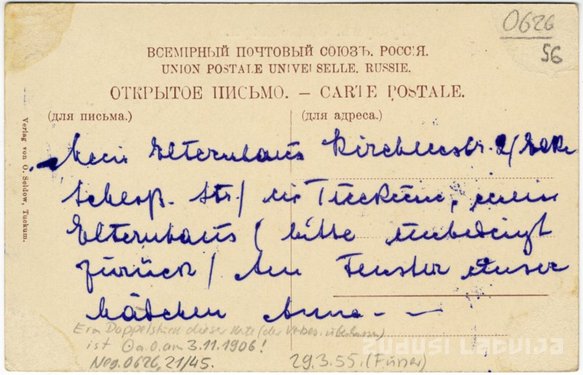 0626
56
ВСЕМІРНЫЙ ПОЧТОВЫЙ СОЮЗЪ. РОССІЯ.
UNION POSTALE UNIVERSELLE. RUSSIE.
ОТКРЫТОЕ ПИСЬМО. — CARTE POSTALE.
(для письма.) (для адреса.)
Verlag von O. Seidow, Tuckum.
Mein Elternhaus Kirchenstr. 2/ Ecke
Schloß. Str./ in Tuckum, mein
Elternhaus / bitte unbedingt
zurück / Am Fenster unser
Mädchen Anna - -
Ein Doppelstück dieser Karte
ist a.o. am 3.11.1906!
Neg. 0626, 21/45. 29.3.55.
ZUDUSI LATVIJA